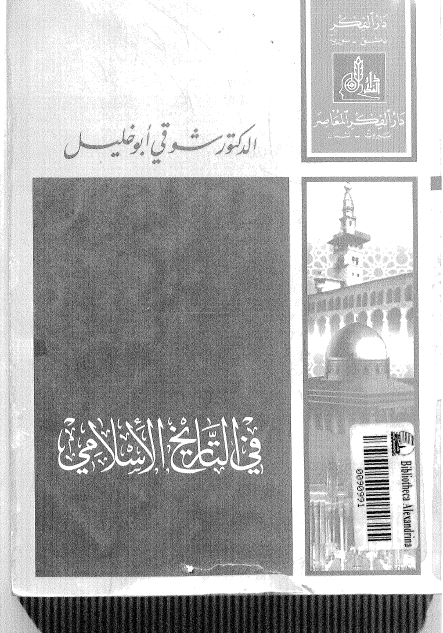 دار الفكر
دمشق - سورية
دار الفكر المعاصر
بيروت - لبنان
الدكتور شوقي أبو خليل
في التاريخ الإسلامي
Bibliotheca Alexandrina
0090991